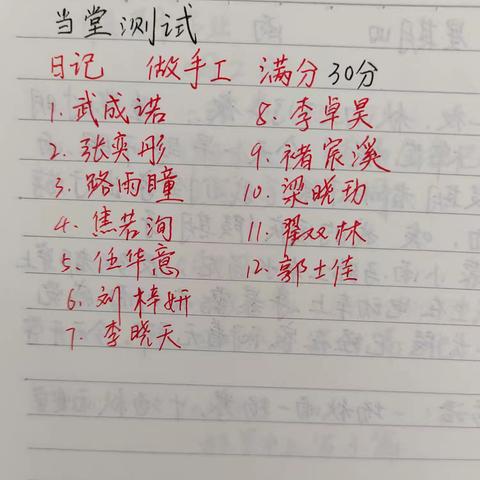 当堂测试
日记 做手工 满分30分
1. 武成诺
2. 张奕彤
3. 路雨瞳
4. 焦若洵
5. 任华意
6. 刘梓妍
7. 李晓天
8. 李卓昊
9. 褚宸溪
10. 梁晓劲
11. 翟双林
12. 郭士佳